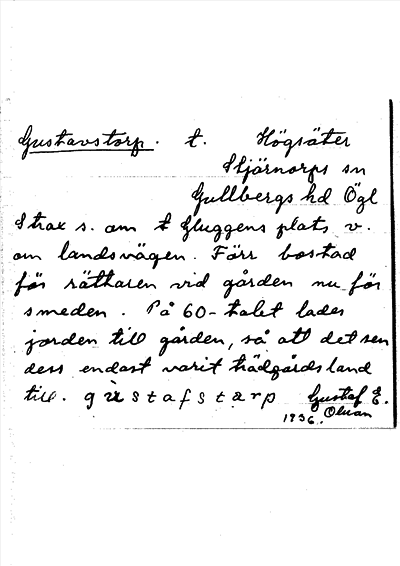 Gustavstorp. t. Högsäter
Stjärnorps sn
Gullbergs hd Ögl
Strax s. om t Gluggens plats v.
om landsvägen. Förr bostad
för rättaren vid gården nu för
smeden. På 60-talet lades
jorden till gården, så att det sen
dess endast varit trädgårdsland
till. gùstafstærp Gustaf E.
1936. Olson